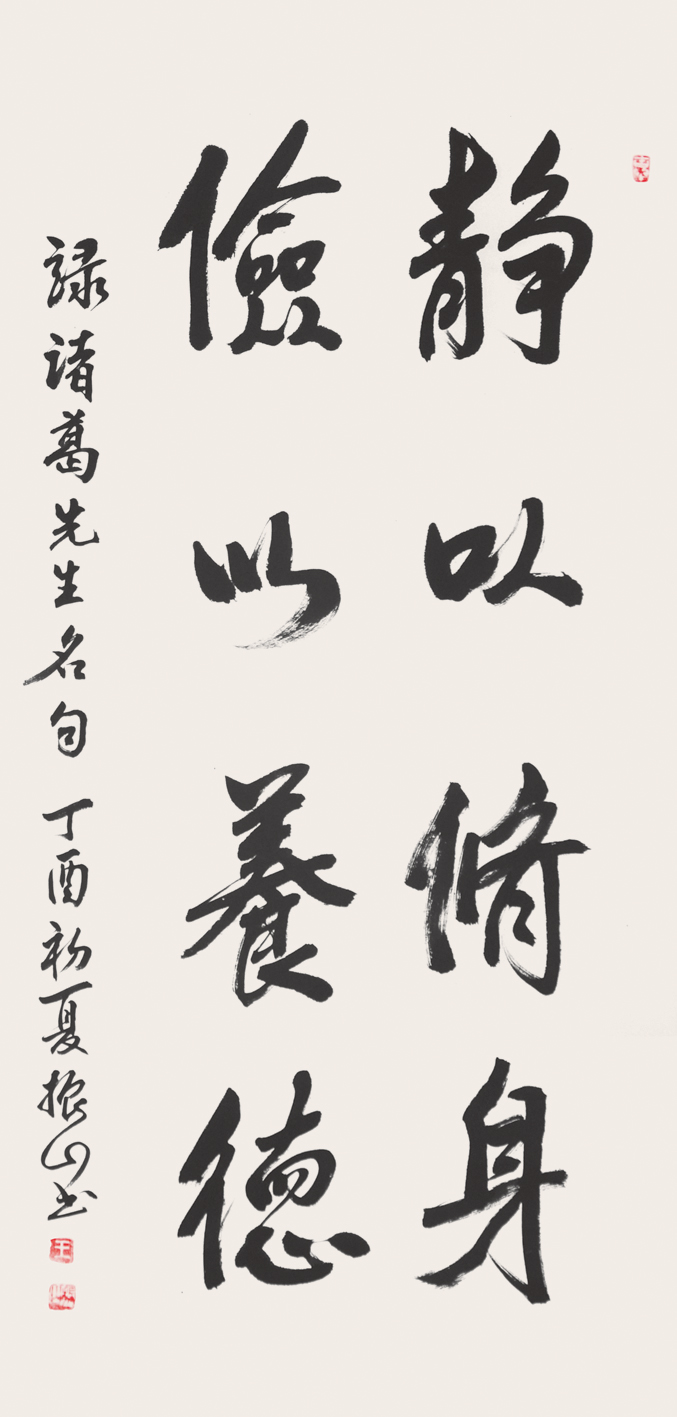 静以脩身
儉以養德
録諸葛先生名句 丁酉初夏振山书
王